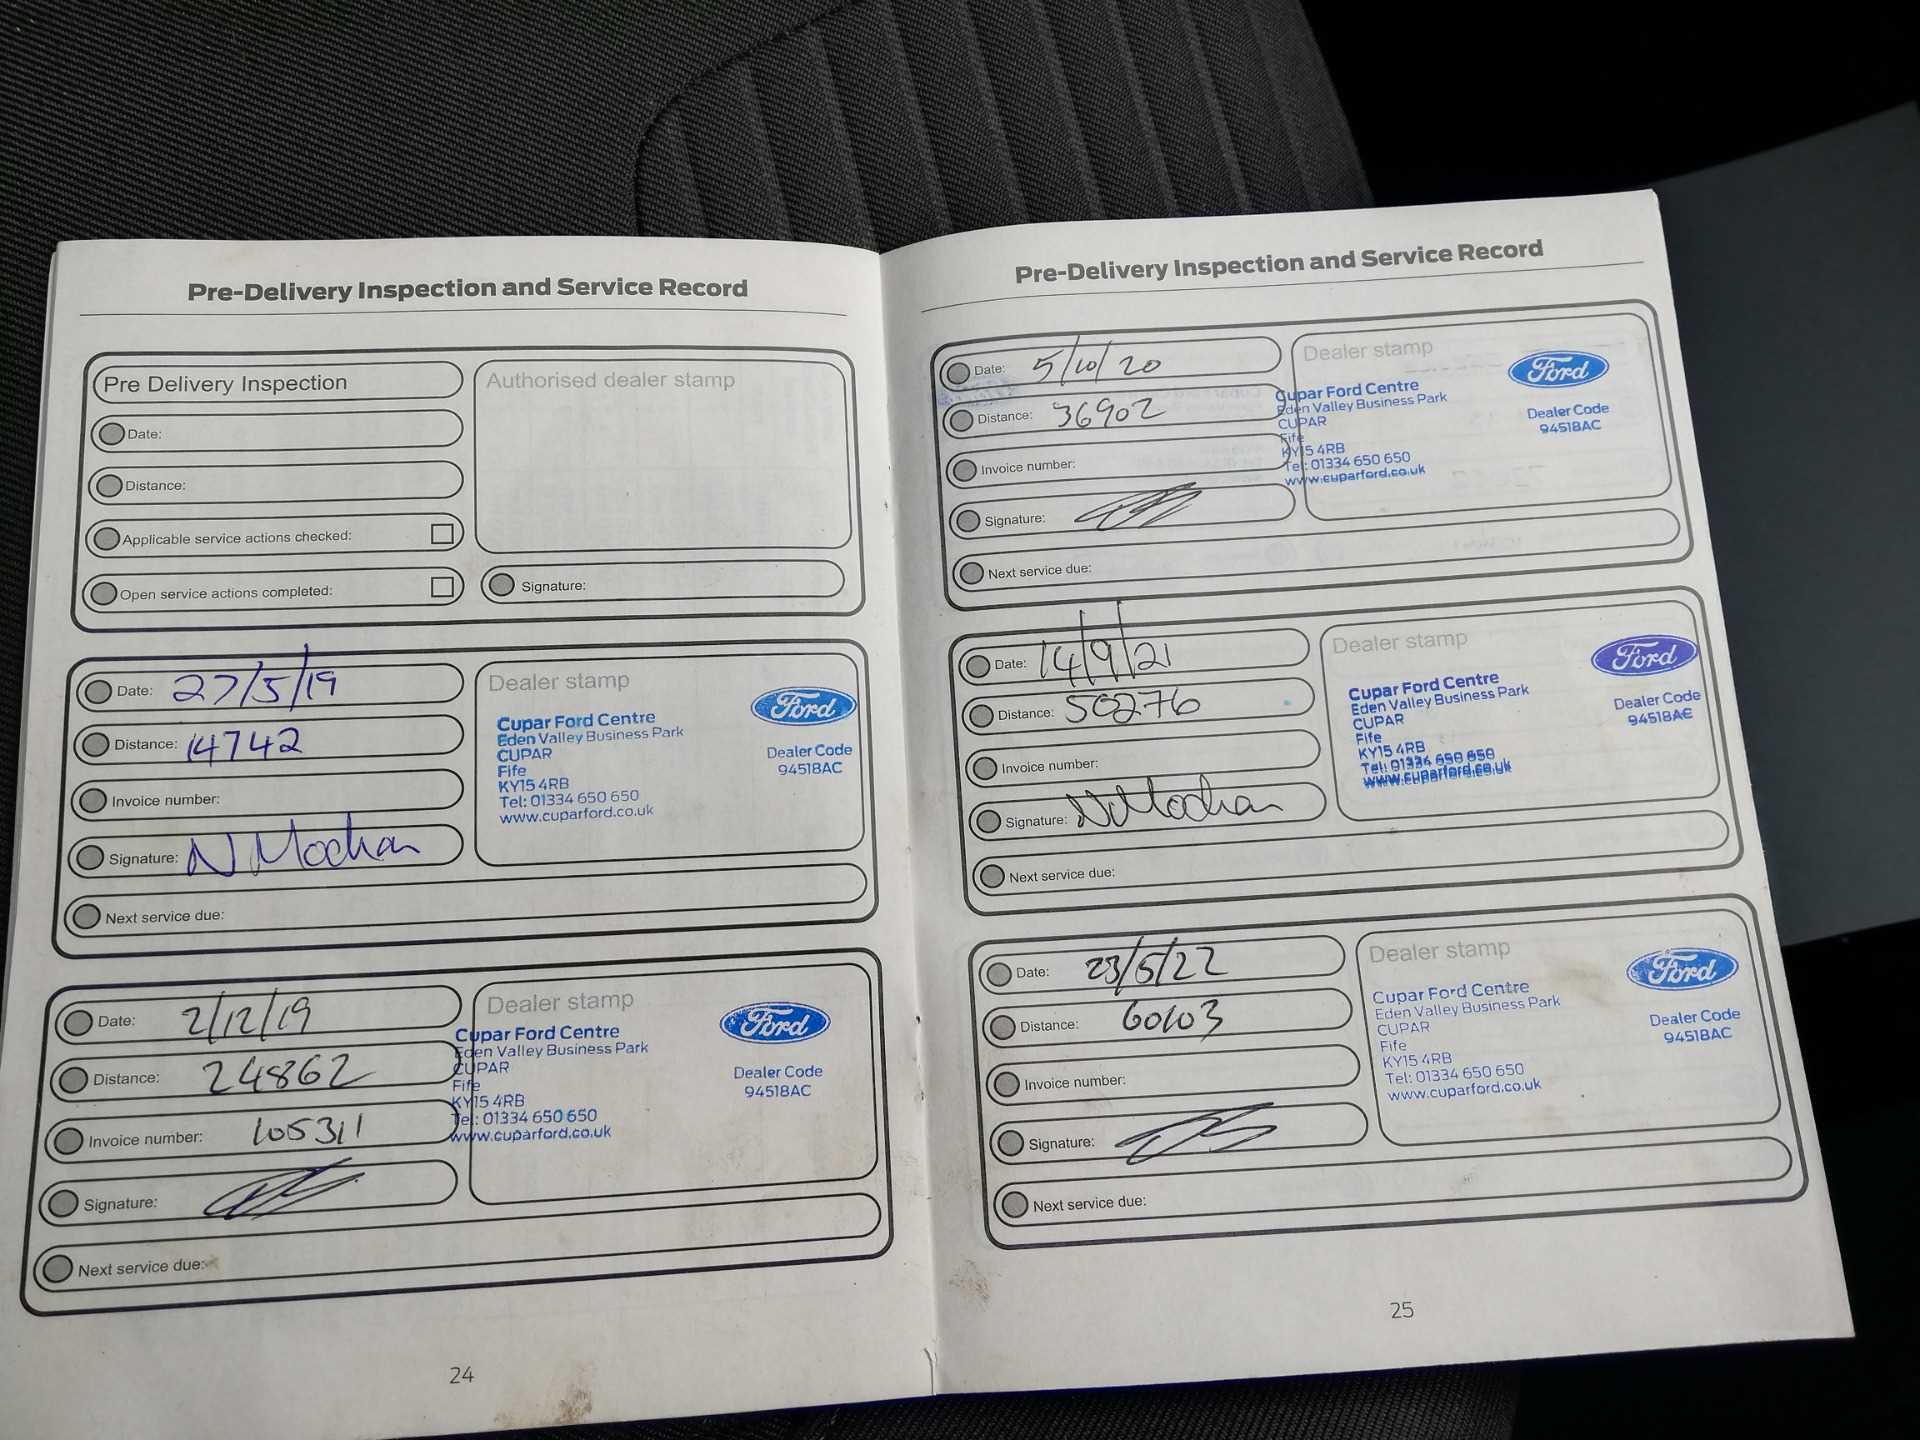 Pre-Delivery Inspection and Service Record
Pre Delivery Inspection
Authorised dealer stamp
Date:
Distance:
Applicable service actions checked:
Open service actions completed:
Signature:
Date: 27/5/19
Distance: 14742
Invoice number:
Signature: N Mochan
Next service due:
Dealer stamp
Ford
Cupar Ford Centre
Eden Valley Business Park
CUPAR
Fife
KY15 4RB
Tel: 01334 650 650
www.cuparford.co.uk
Dealer Code
94518AC
Date: 2/12/19
Distance: 24862
Invoice number: 105311
Signature:
Next service due:
Dealer stamp
Ford
Cupar Ford Centre
Eden Valley Business Park
CUPAR
Fife
KY15 4RB
Tel: 01334 650 650
www.cuparford.co.uk
Dealer Code
94518AC
24
Pre-Delivery Inspection and Service Record
Date: 5/10/20
Distance: 36902
Invoice number:
Signature:
Next service due:
Dealer stamp
Ford
Cupar Ford Centre
Eden Valley Business Park
CUPAR
Fife
KY15 4RB
Tel: 01334 650 650
www.cuparford.co.uk
Dealer Code
94518AC
Date: 14/9/21
Distance: 50276
Invoice number:
Signature: N Mochan
Next service due:
Dealer stamp
Ford
Cupar Ford Centre
Eden Valley Business Park
CUPAR
Fife
KY15 4RB
Tel: 01334 650 650
www.cuparford.co.uk
Dealer Code
94518AC
Date:
Distance: 60103
Invoice number:
Signature:
Next service due:
Dealer stamp
Ford
Cupar Ford Centre
Eden Valley Business Park
CUPAR
Fife
KY15 4RB
Tel: 01334 650 650
www.cuparford.co.uk
Dealer Code
94518AC
25